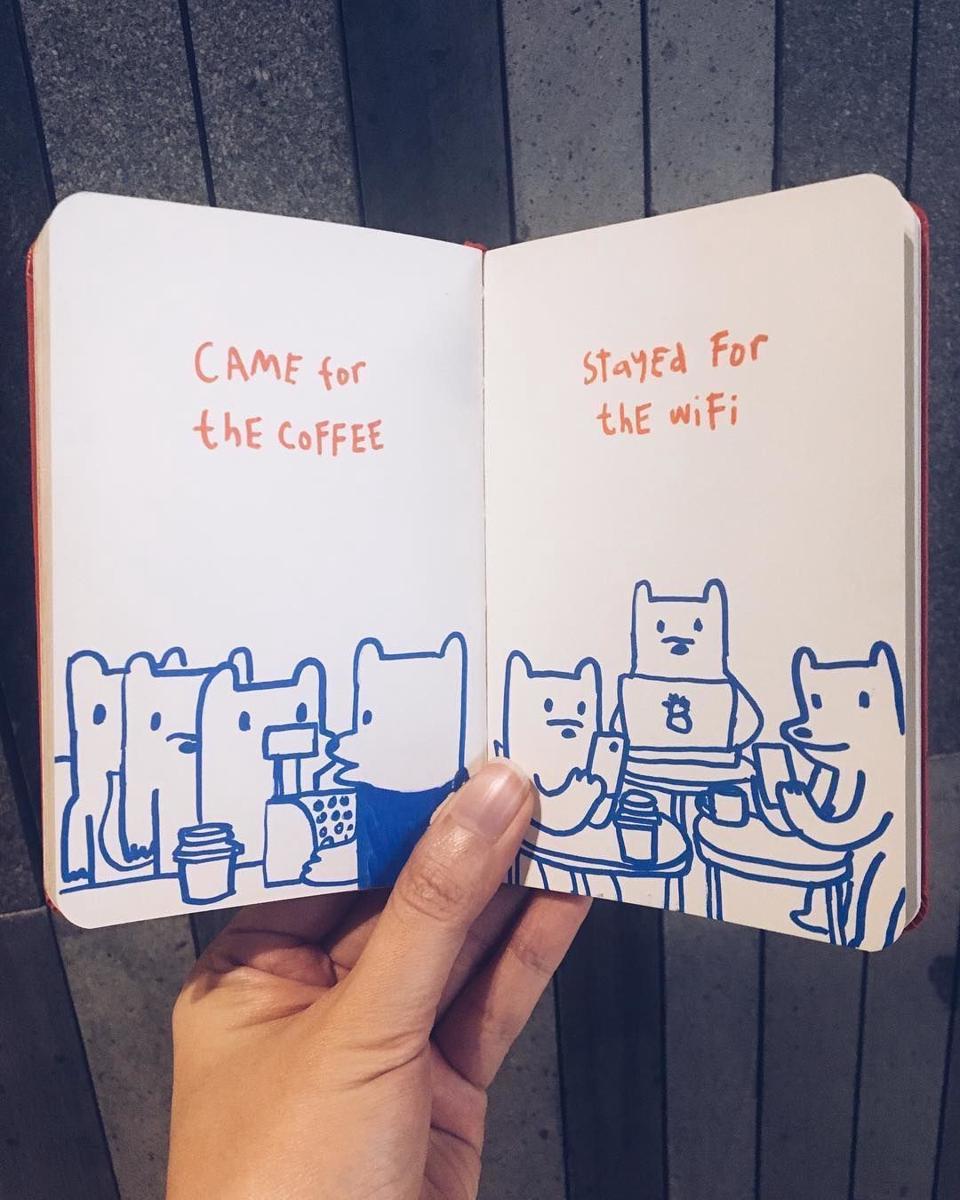 CAME for
thE COFFEE
StayEd For
thE wiFi